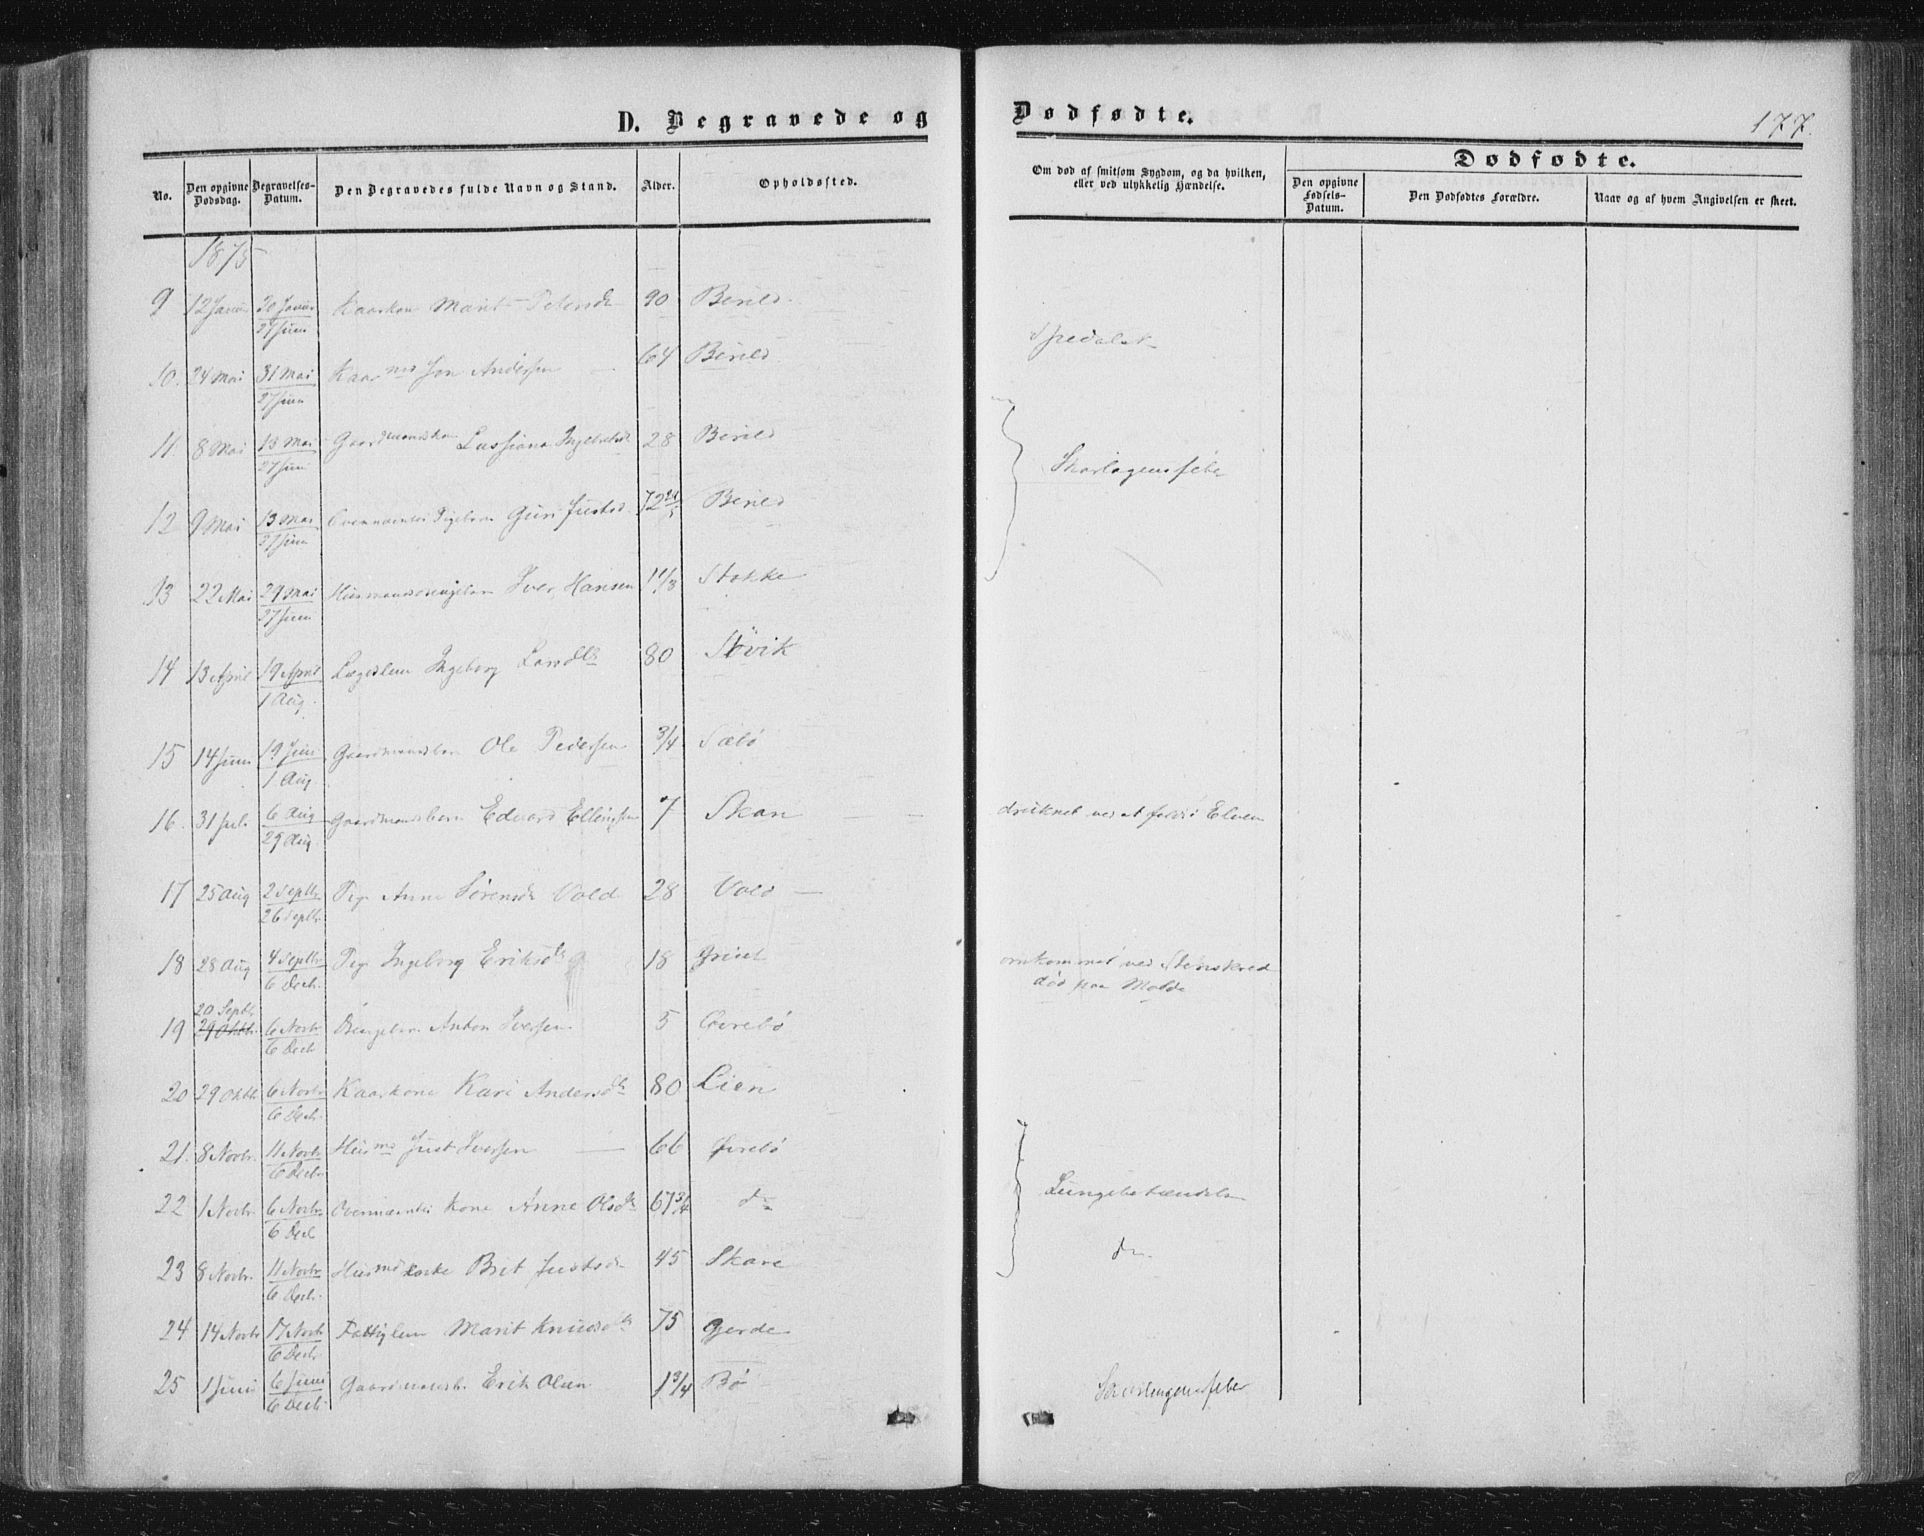 D. Begravede og Dødfødte.
177.
No. Den opgivne Dødsdag. Begravelses-Datum. Den Begravedes fulde Navn og Stand. Alder. Opholdssted. Om død af smitsom Sygdom, og da hvilken, eller ved ulykkelig Hændelse.
Dødfødte.
Den opgivne Fødsels-Datum. Den Dødfødtes Forældre. Naar og af hvem Angivelsen er skeet.
1875
9 12 Januar 20 Januar / 27 Juni Kaarkone Marit Petersdr 90 Berild
10. 24 Mai 31 Mai / 27 Juni Kaarmd Jon Andersen 64 Berild Spedalsk
11 8 Mai 13 Mai / 27 Juni Gaardmandskone 28 Berild Skarlagensfeber
12 9 Mai 13 Mai / 27 Juni Ovennævntes Pigebarn Guri Justsd Berild
13 22 Mai 29 Mai / 27 Juni Iver Hansen 1 1/3 Stokke
14 13 April 19 April / 1 Aug. Lægdslem Ingeborg Larsdtr 80 Støvik
15 14 Juni 19 Juni / 1 Aug. Gaardmandsbarn Ole Pedersen 3/4 Sæbø
16. 31 Juli 6 Aug / 29 Aug Gaardmandsbarn Edvard Ellingsen 7 Skar druknet ved at Elven
17 25 Aug 2 Septbr / 26 Septbr. Pige Anne Sørensdr Vold 28 Vold
18 28 Aug 4 Septbr / 6 Decbr. Pige Ingeborg Eriksdtr 18 omkommet ved Stenskred
død paa Molde
20 Septbr.
19 29 Oktbr. 6 Novbr / 6 Decb Drengebarn Anton Iversen 5
20 29 Oktbr 6 Novbr / 6 Decbr. Kaarkone Kari Andersdtr 80 Lien
21. 8 Novbr. 11 Novbr / 6 Decbr. Husmd Just Iversen 66
22 1 Novbr. 6 Novbr / 6 Decb Ovennævntes Kone Anne Olsdtr 67 3/4 do Lungebetændelse
23 8 Novbr. 11 Novbr / 6 Decbr. Husmd Brit Justsdr 45 Skare do.
24 14 Novbr 17 Novb / 6 Decbr Fattiglem Marit Knudsdtr 75 Gjerde
25 1 Juni 6 Juni / 6 Decbr. Erik Olsen 1 3/4 Bø Skarlagensfeber